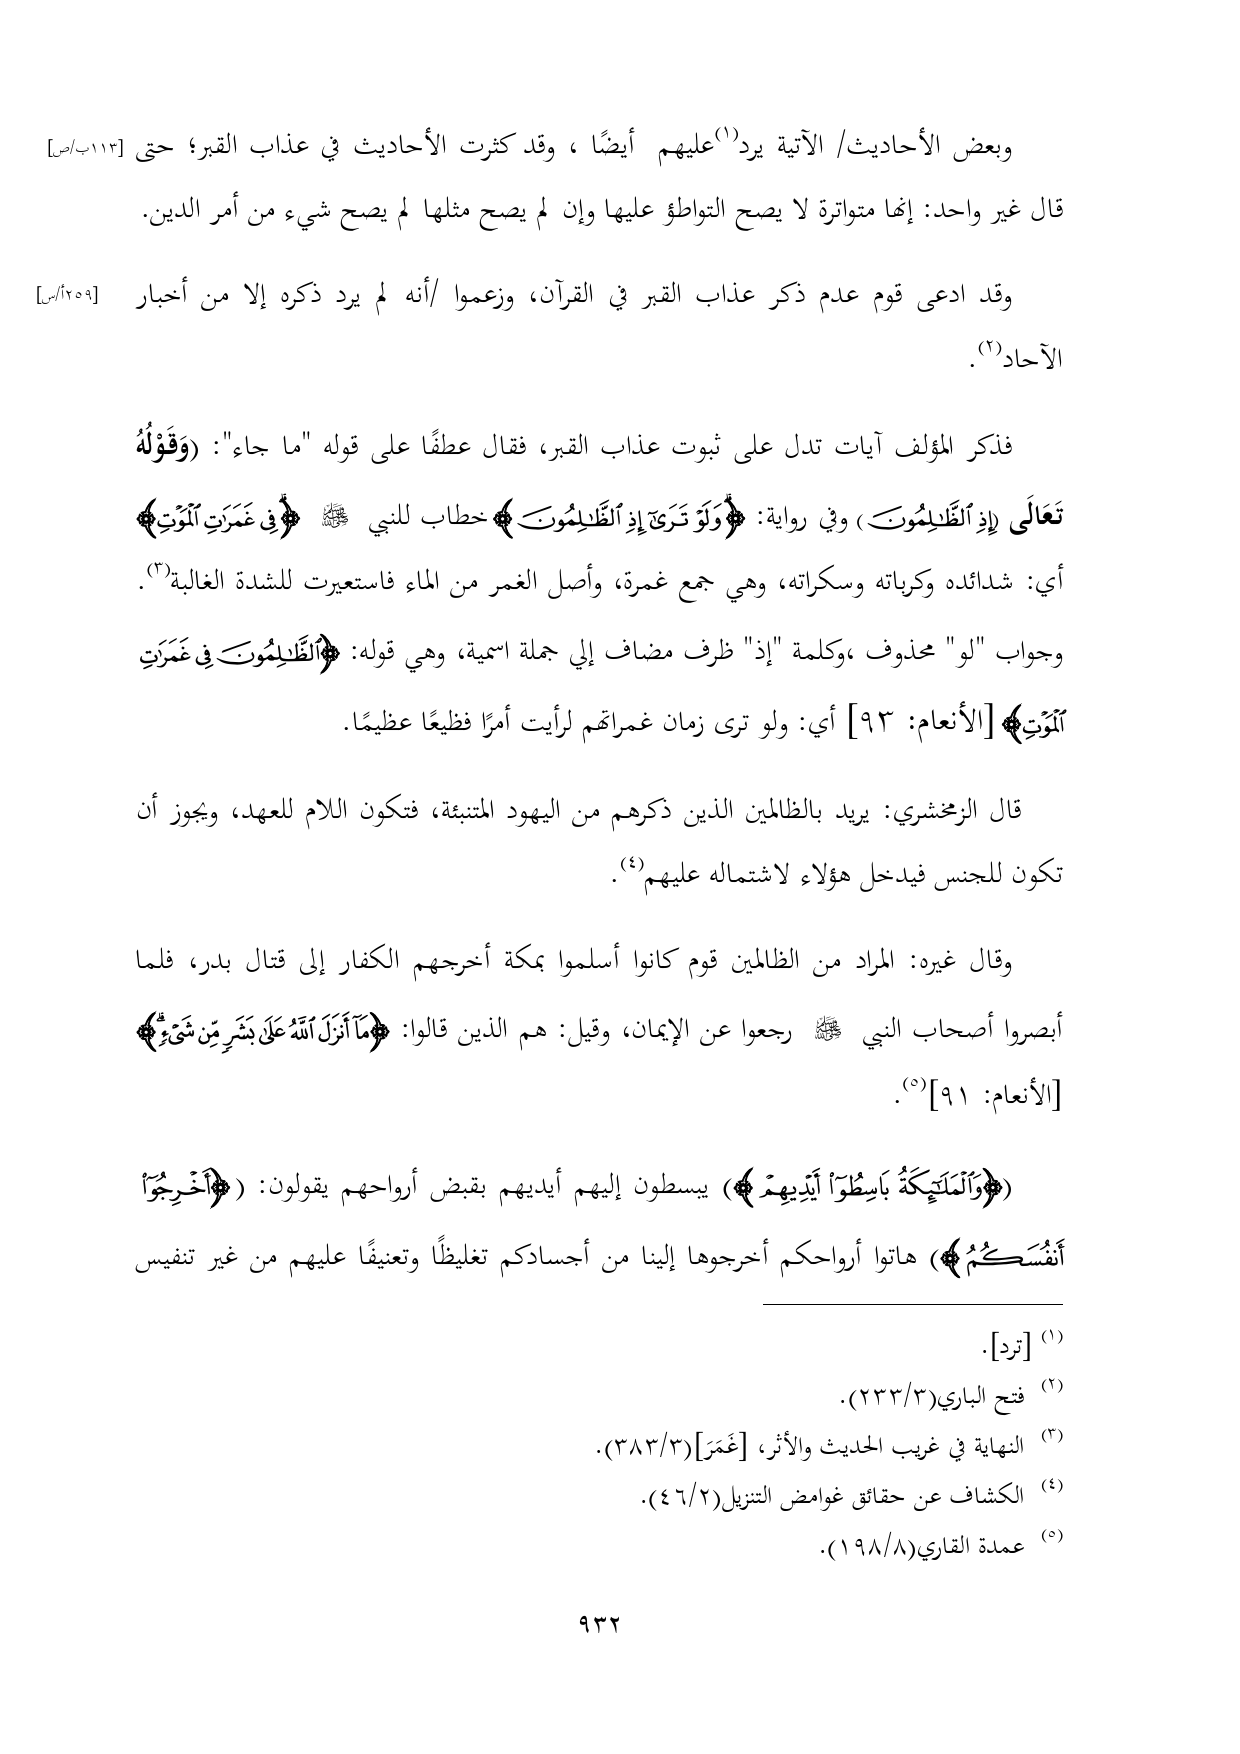 وبعض الأحاديث/ الآتية يرد(١)عليهم أيضًا ، وقد كثرت الأحاديث في عذاب القبر؛ حتى [١١٣ب/ص]
قال غير واحد: إنها متواترة لا يصح التواطؤ عليها وإن لم يصح مثلها لم يصح شيء من أمر الدين.
وقد ادعى قوم عدم ذكر عذاب القبر في القرآن، وزعموا /أنه لم يرد ذكره إلا من أخبار [٢٥٩أ/س]
الآحاد(٢).
فذكر المؤلف آيات تدل على ثبوت عذاب القبر، فقال عطفًا على قوله "ما جاء": (وَقَوْلُهُ
تَعَالَى (إِذِ ٱلظَّٰلِمُونَ) وفي رواية: ﴿وَلَوْ تَرَىٰٓ إِذِ ٱلظَّٰلِمُونَ﴾خطاب للنبي ﷺ ﴿فِى غَمَرَٰتِ ٱلْمَوْتِ﴾
أي: شدائده وكرباته وسكراته، وهي جمع غمرة، وأصل الغمر من الماء فاستعيرت للشدة الغالبة(٣).
وجواب "لو" محذوف ،وكلمة "إذ" ظرف مضاف إلي جملة اسمية، وهي قوله: ﴿ٱلظَّٰلِمُونَ فِى غَمَرَٰتِ
ٱلْمَوْتِ﴾ [الأنعام: ٩٣] أي: ولو ترى زمان غمراتهم لرأيت أمرًا فظيعًا عظيمًا.
قال الزمخشري: يريد بالظالمين الذين ذكرهم من اليهود المتنبئة، فتكون اللام للعهد، ويجوز أن
تكون للجنس فيدخل هؤلاء لاشتماله عليهم(٤).
وقال غيره: المراد من الظالمين قوم كانوا أسلموا بمكة أخرجهم الكفار إلى قتال بدر، فلما
أبصروا أصحاب النبي ﷺ رجعوا عن الإيمان، وقيل: هم الذين قالوا: ﴿مَآ أَنزَلَ ٱللَّهُ عَلَىٰ بَشَرٍ مِّن شَىْءٍ ۗ﴾
[الأنعام: ٩١](٥).
(﴿وَٱلْمَلَٰٓئِكَةُ بَاسِطُوٓا۟ أَيْدِيهِمْ ﴾) يبسطون إليهم أيديهم بقبض أرواحهم يقولون: (﴿أَخْرِجُوٓا۟
أَنفُسَكُمُ ﴾) هاتوا أرواحكم أخرجوها إلينا من أجسادكم تغليظًا وتعنيفًا عليهم من غير تنفيس
(١) [ترد].
(٢) فتح الباري(٢٣٣/٣).
(٣) النهاية في غريب الحديث والأثر، [غَمَرَ](٣٨٣/٣).
(٤) الكشاف عن حقائق غوامض التنزيل(٤٦/٢).
(٥) عمدة القاري(١٩٨/٨).
٩٣٢